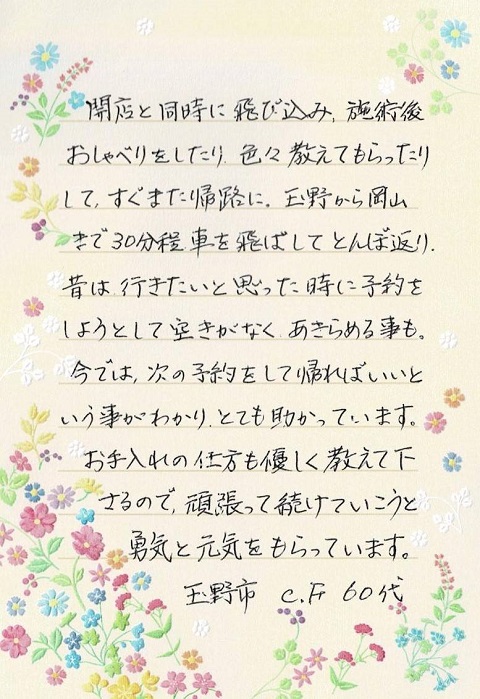 開店と同時に飛び込み、施術後
おしゃべりをしたり、色々教えてもらったり
して、すぐまた帰路に。玉野から岡山
まで30分程車を飛ばしてとんぼ返り。
昔は行きたいと思った時に予約を
しようとして空きがなく、あきらめる事も。
今では、次の予約をして帰ればいいと
いう事がわかり、とても助かっています。
お手入れの仕方も優しく教えて下
さるので、頑張って続けていこうと
勇気と元気をもらっています。
玉野市 C.F 60代